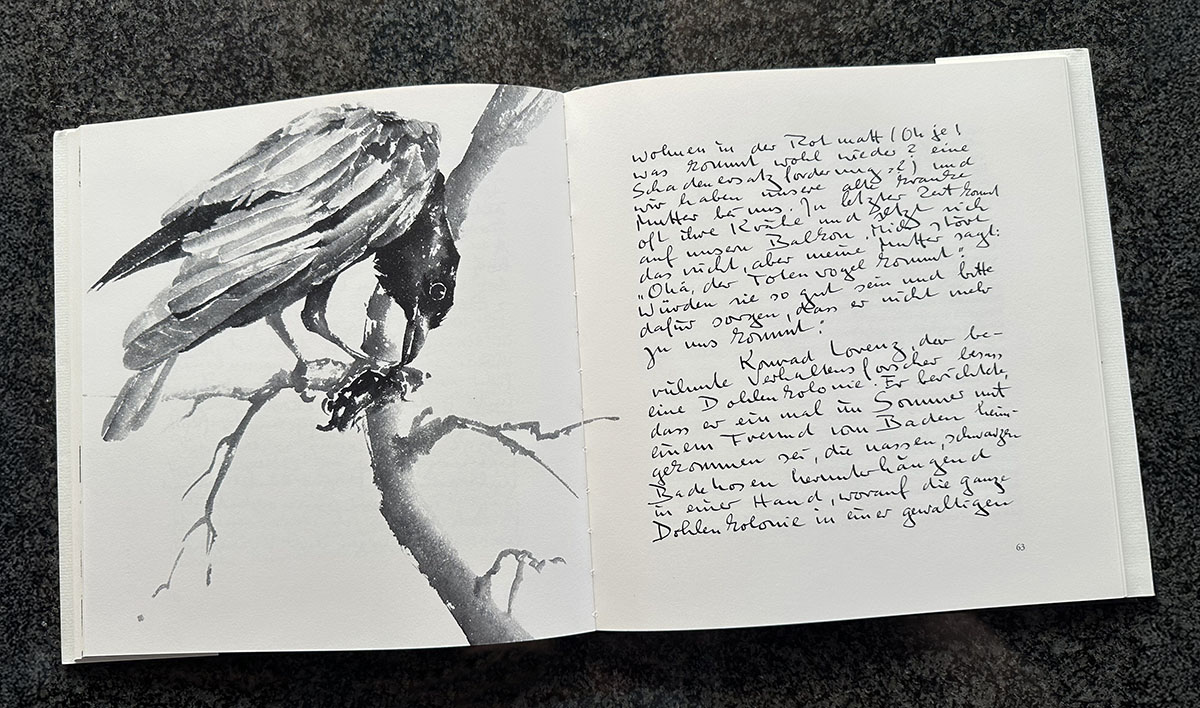 wohnen in der Rotmatt (Oh je!
was kommt wohl wieder? eine
Schadenersatzforderung?) und
wir haben unsere alte kranke
Mutter bei uns. In letzter Zeit kommt
oft ihre Krähe und setzt sich
auf unsern Balkon. Mich stört
das nicht, aber meine Mutter sagt:
"Ohä, der Totenvogel kommt".
Würden sie so gut sein und bitte
dafür sorgen, dass er nicht mehr
zu uns kommt".
Konrad Lorenz, der be-
rühmte Verhaltensforscher besass
eine Dohlenkolonie. Er berichtete,
dass er einmal im Sommer mit
einem Freund vom Baden heim-
gekommen sei, die nassen, schwarzen
Badehosen herunterhängend
in einer Hand, worauf die ganze
Dohlenkolonie in einer gewaltigen
63